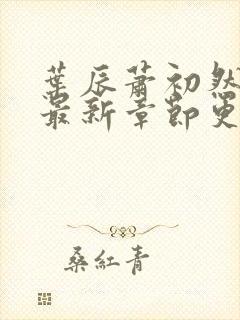 葉辰蕭初然
最新章節更
桑紅青